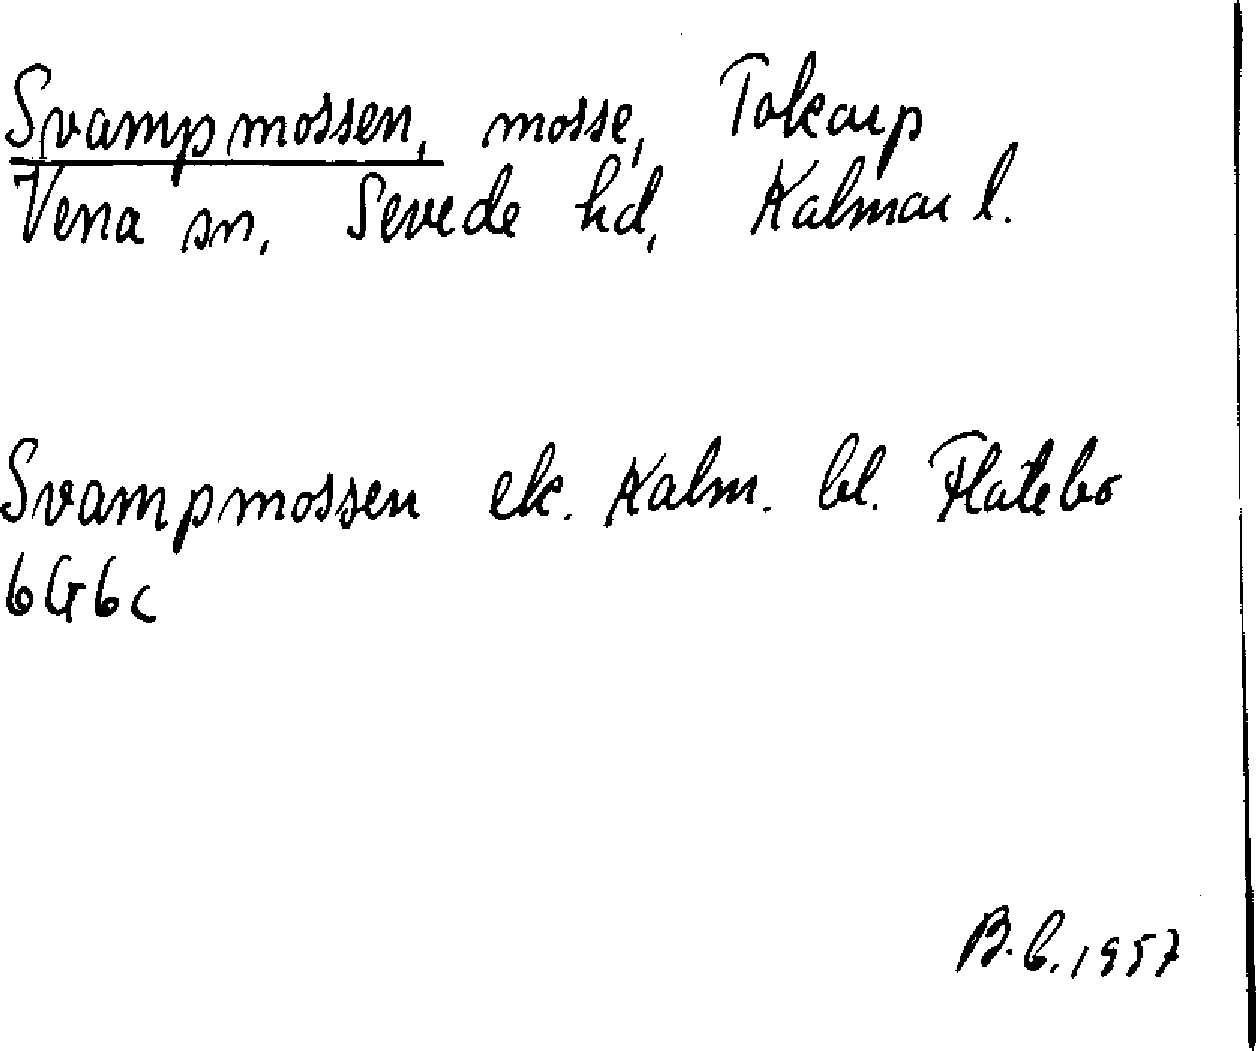 Svampmossen, mosse, Tokarp
Vena sn, Sevede hd, Kalmar l.
Svampmossen ek. Kalm. bl. Flatebo
6G6c
B.b.1957